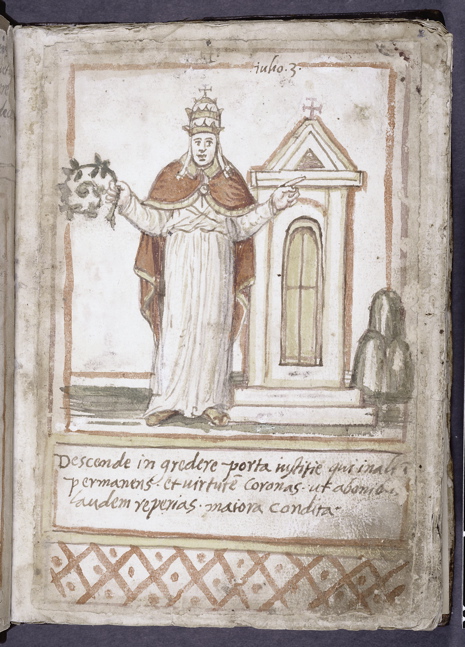 iulio. 3.
Descende in gredere porta iustitie qui
permanens. et virture Coronas. ut
laudem reperias. maiora Condita.